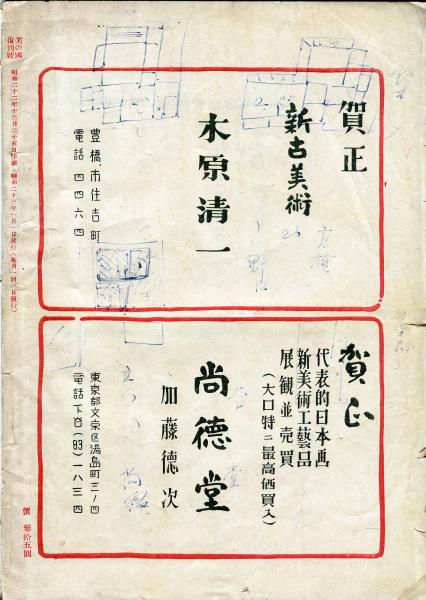 賀正
新古美術
木原清一
豊橋市住吉町
電話 四四六四
賀正
代表的日本画
新美術工藝品
展観並売買
(大口特ニ最高価買入)
尚徳堂
加藤徳次
東京都文京区湯島町三ノ四
電話下谷(83)一八三四
美の國
復刊號
昭和二十二年十二月二十五日印刷 昭和二十三年一月一日發行(毎月一回一日發行)
價 參拾五圓